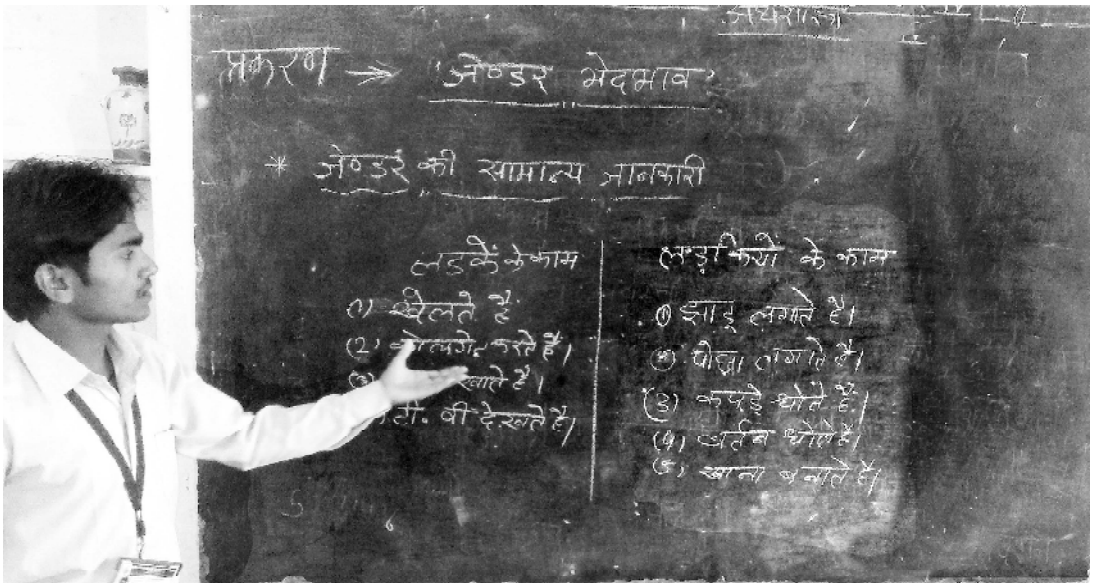 अर्थशास्त्र
प्रकरण → 'जेण्डर भेदभाव'
* जेण्डर की सामान्य जानकारी
लडकें के काम
(1) खेलते हैं
(2) करते हैं।
(3) खाते है।
टी. वी देखते है।
लड़कियों के काम
(1) झाडू लगाते है।
(2) पोछा लगाते है।
(3) कपड़े धोते है।
(4) बर्तन धोते है।
(5) खाना बनाते है।